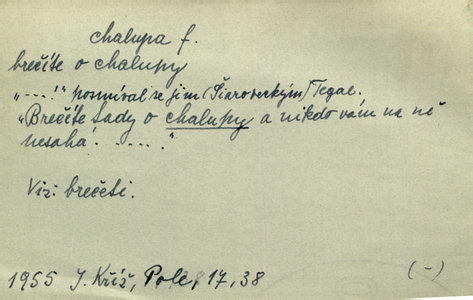 chalupa f.
brečíte o chalupy
„---!" posmíval se jim (Šiaroveckým) Tegal.
„Brečíte tady o chalupy a nikdo vám na ně
nesahá! - - - - ."
Viz: brečeti.
1955 J. Kříž, Pole, 17, 38 (-)